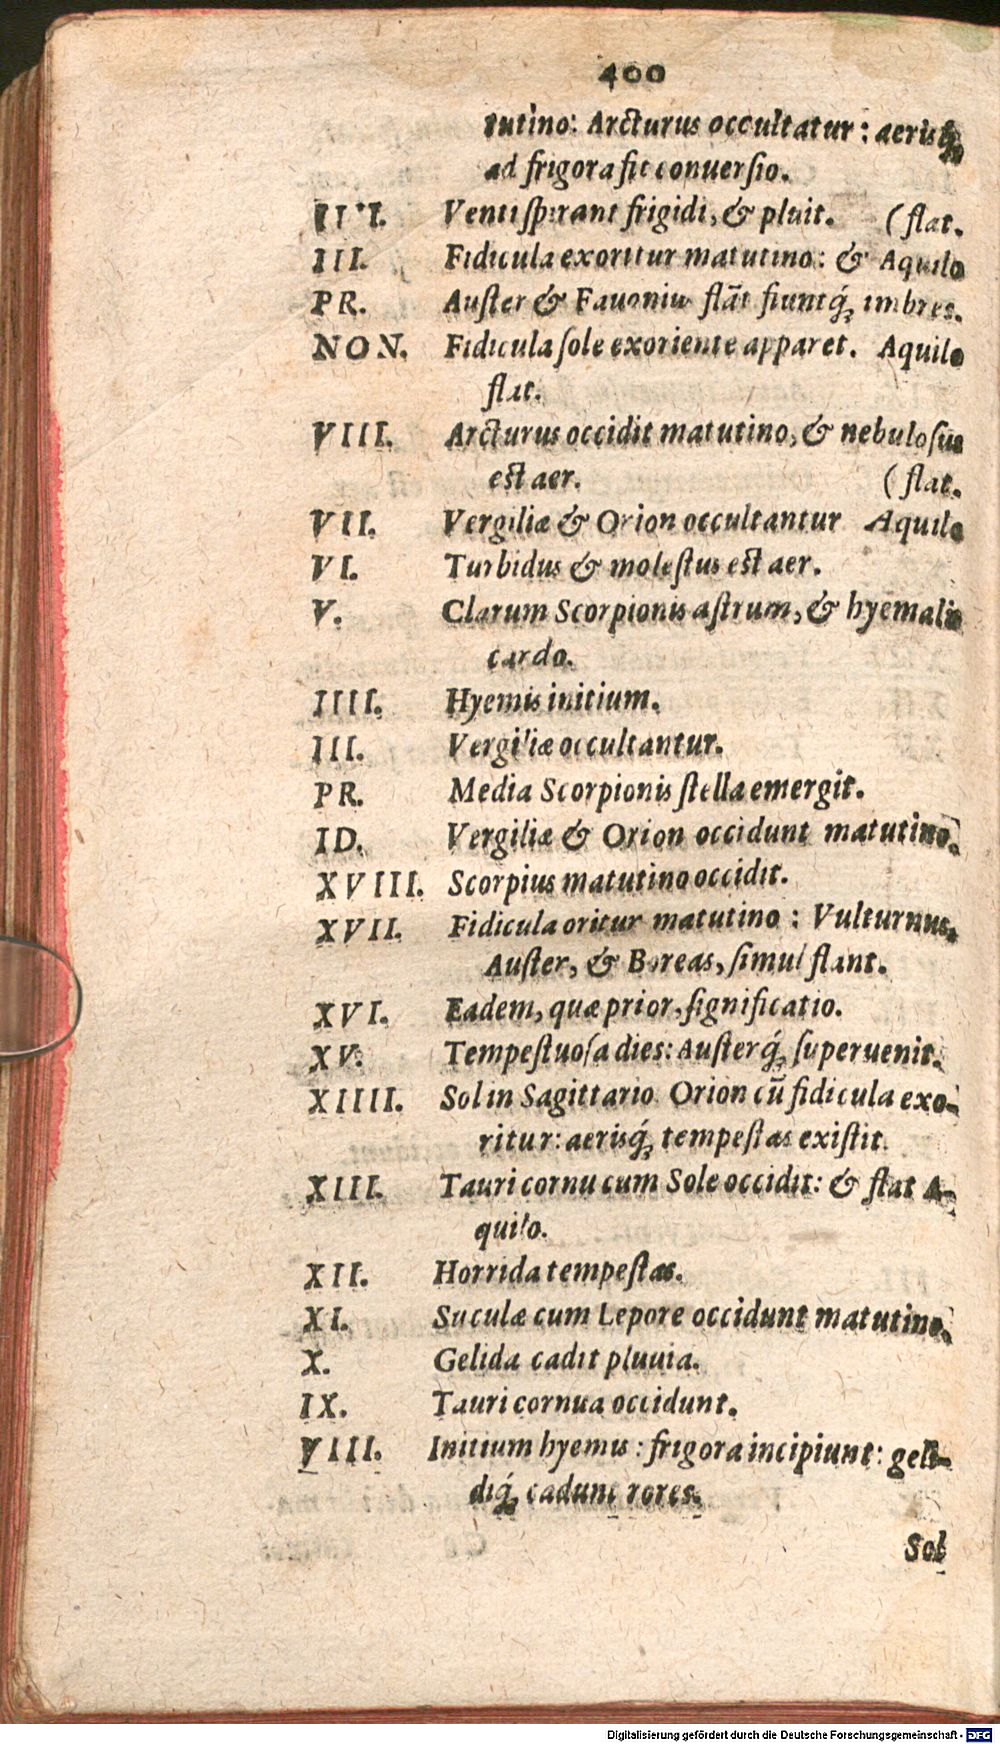 400
tutino: Arcturus occultatur: aerisq́;
ad frigora fit conuersio.
IIII. Venti spirant frigidi, & pluit. (flat.
III. Fidicula exoritur matutino: & Aquilo
PR. Auster & Fauonius flāt fiuntq́; imbres.
NON. Fidicula sole exoriente apparet. Aquilo
flat.
VIII. Arcturus occidit matutino, & nebulosus
est aer. (flat.
VII. Vergiliæ & Orion occultantur Aquilo
VI. Turbidus & molestus est aer.
V. Clarum Scorpionis astrum, & hyemalis
cardo.
IIII. Hyemis initium.
III. Vergiliæ occultantur.
PR. Media Scorpionis stella emergit.
ID. Vergiliæ & Orion occidunt matutino.
XVIII. Scorpius matutino occidit.
XVII. Fidicula oritur matutino: Vulturnus,
Auster, & Boreas, simul flant.
XVI. Eadem, quæ prior, significatio.
XV. Tempestuosa dies: Austerq́; superuenit.
XIIII. Sol in Sagittario. Orion cū fidicula exo-
ritur: aerisq́; tempestas existit.
XIII. Tauri cornu cum Sole occidit: & flat A-
quilo.
XII. Horrida tempestas.
XI. Suculæ cum Lepore occidunt matutino.
X. Gelida cadit pluuia.
IX. Tauri cornua occidunt.
VIII. Initium hyemis: frigora incipiunt: geli-
diq́; cadunt rores.
Sol
Digitalisierung gefördert durch die Deutsche Forschungsgemeinschaft - DFG